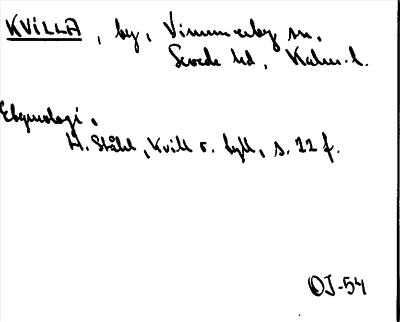 KVILLA, by, Vimmerby sn,
Sevede hd, Kalm. l.
Etymologi.
H. Ståhl, Kvill o. fyll, s. 22 f.
OJ-54